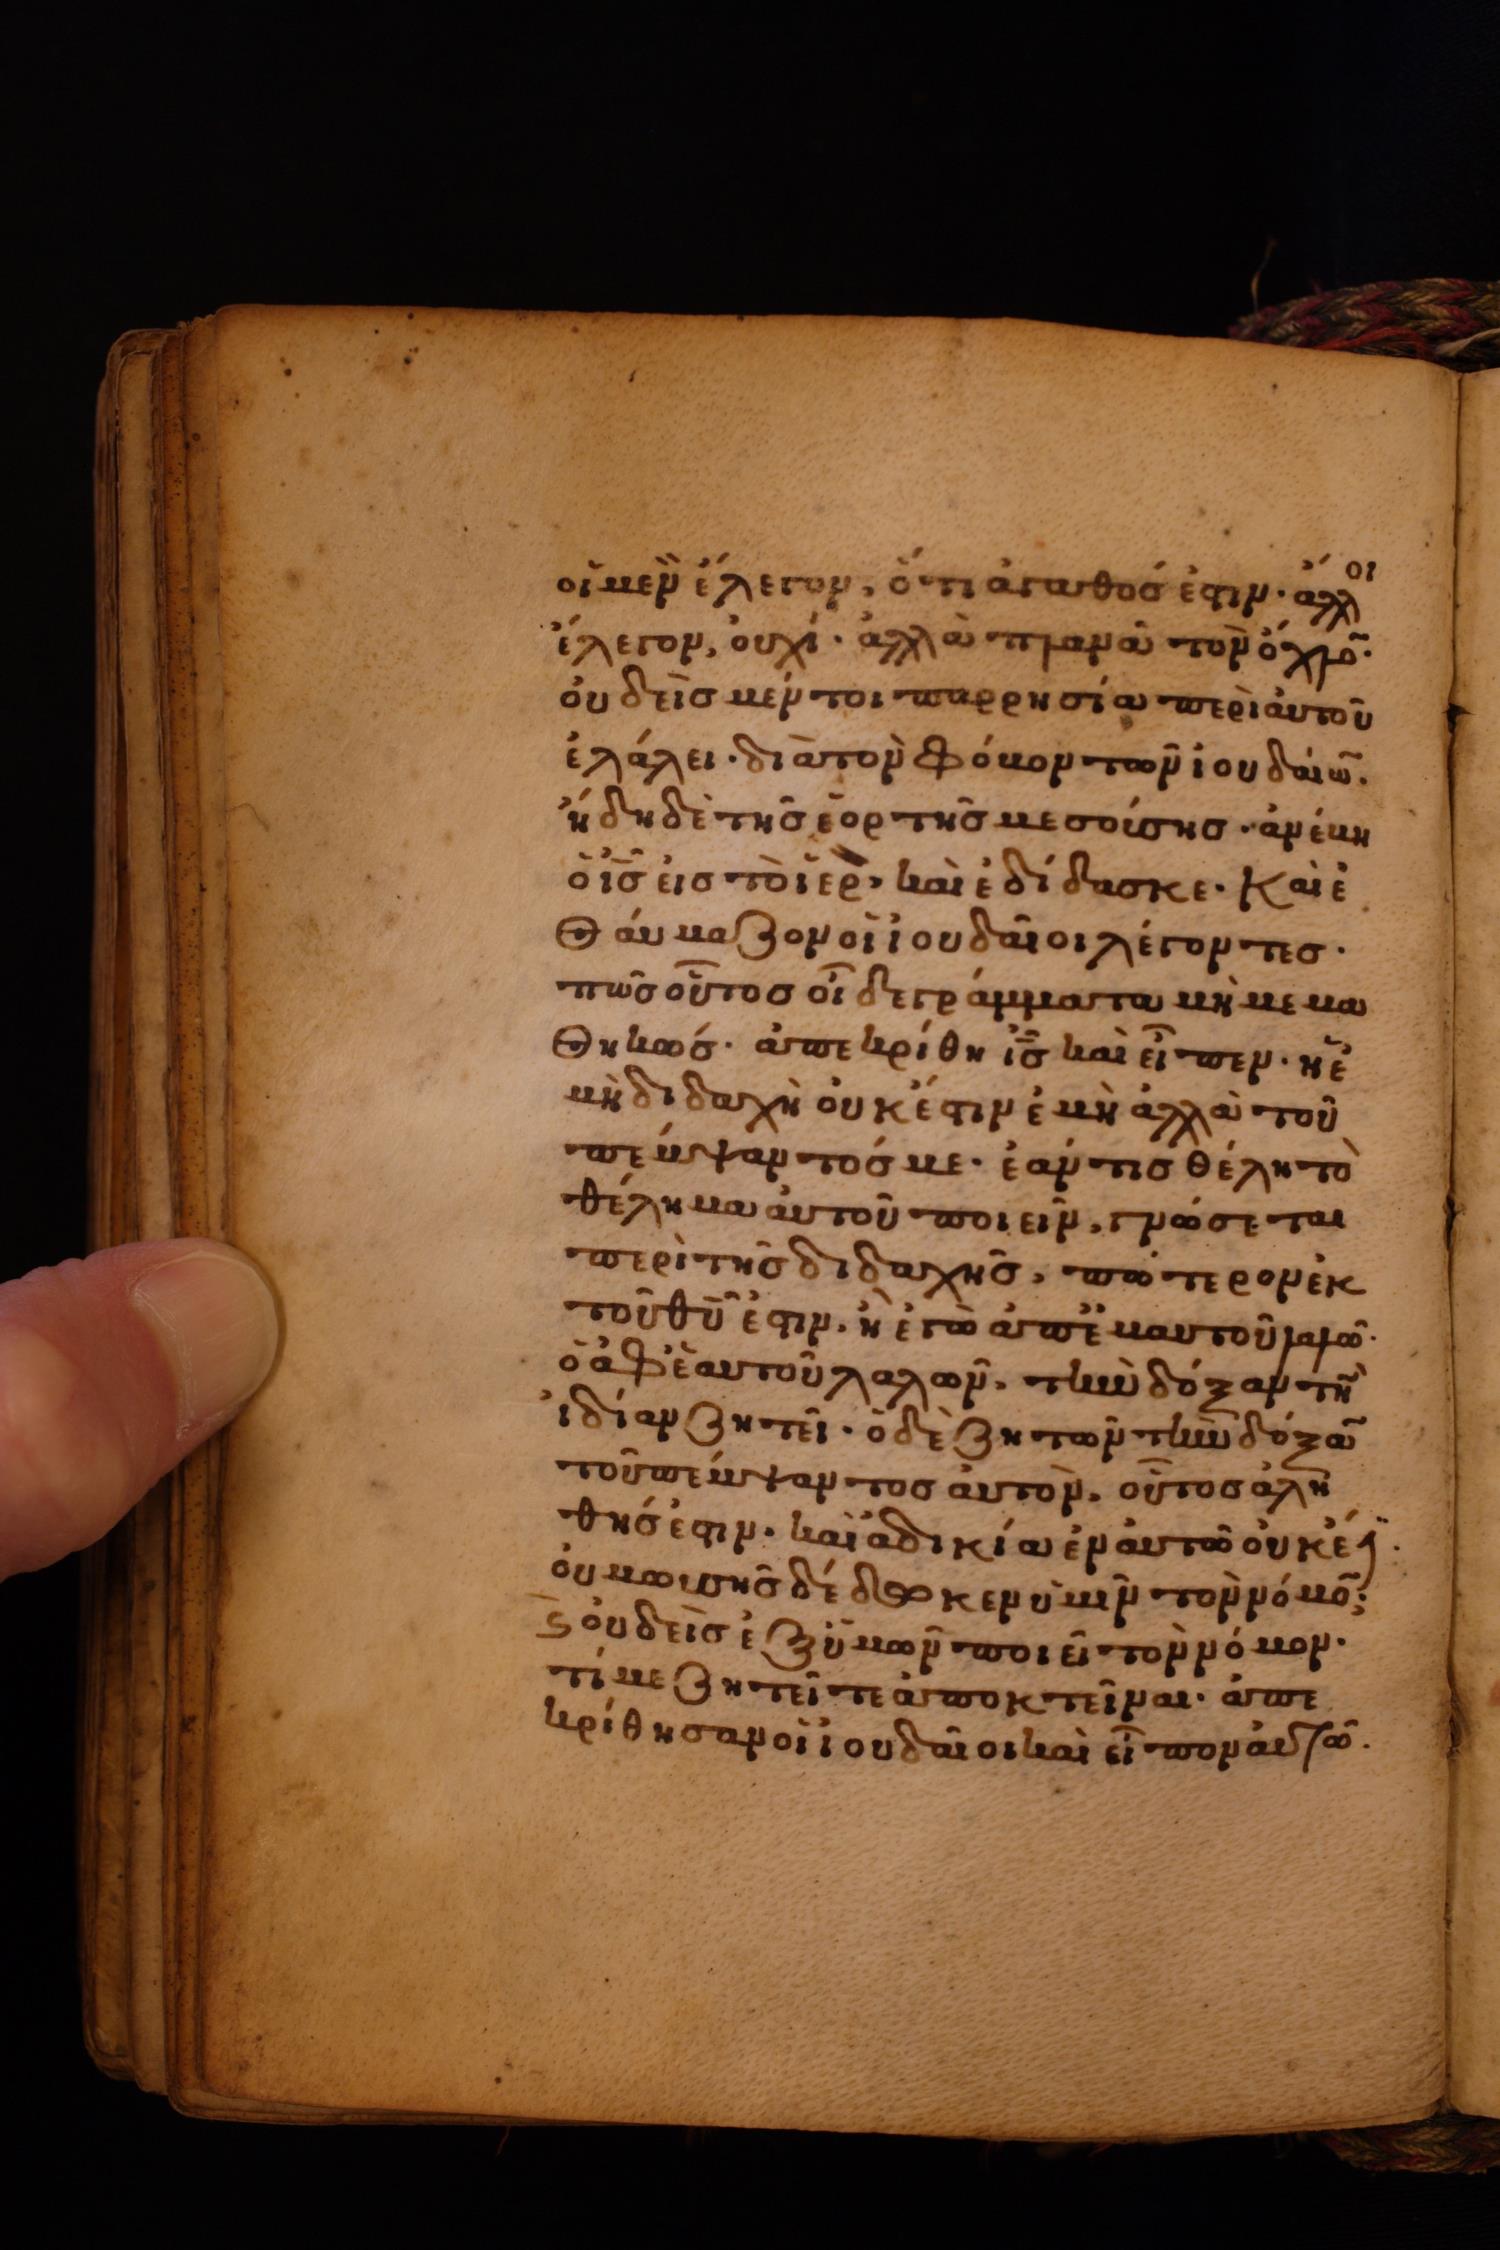 οἱ μὲν ἔλεγον, ὅτι ἀγαθόσ ἐστιν· ἄλλοι
ἔλεγον, οὐχί· ἀλλὰ πλανᾶ τὸν ὄχλο̅·
οὐδεὶσ μέντοι παρρησία περὶ αὐτοῦ
ἐλάλει· διὰ τὸν φόβον τῶν ἰουδαίω̅·
ἤδη δὲ τῆσ ἑορτῆσ μεσούσησ· ἀνέβη
ὁ ι̅σ̅ εἰσ τὸ ἱερὸ, καὶ ἐδίδασκε· Καὶ ἐ
θαύμαζον οἱ ἰουδαῖοι λέγοντεσ·
πῶσ οὗτοσ οἶδε γράμματα μὴ μεμα
θηκώσ· ἀπεκρίθη ι̅σ̅ καὶ εἶπεν· ἡ ἐ
μὴ διδαχὴ οὐκ ἔστιν ἐμὴ ἀλλὰ τοῦ
πέμψαντόσ με· ἐάν τισ θέλη τὸ
θέλημα αὐτοῦ ποιεῖν, γνώσεται
περὶ τῆσ διδαχῆσ, πώτερον ἐκ
τοῦ θ̅υ̅ ἐστιν· ἢ ἐγὼ ἀπ' ἐμαυτοῦ λαλῶ·
ὁ ἀφ' ἑαυτοῦ λαλῶν, τὴν δόξαν τὴ̅
ἰδίαν ζητεῖ· ὁ δὲ ζητῶν τὴν δόξα̅
τοῦ πέμψαντοσ αὐτὸν, οὗτοσ ἀλη
θήσ ἐστιν· καὶ ἀδικία ἐν αὐτῶ οὐκ ἔστ̈·
οὐ μωυσῆσ δέδωκεν ὑμῖν τὸν νόμο̅;
ϛ̀ οὐδεὶσ ἐξ ὑμῶν ποιεῖ τὸν νόμον·
τί με ζητεῖτε ἀποκτεῖναι· ἀπε
κρίθησαν οἱ ἰουδαῖοι καὶ εἶπον αὐτῶ·